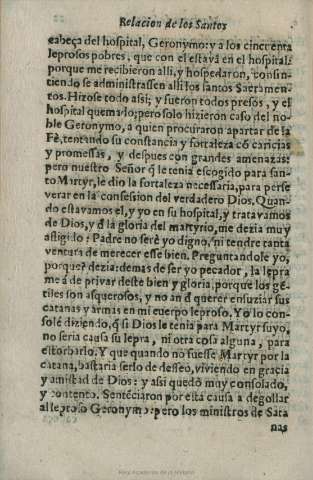 Relacion de los Santos
cabeça del hospital, Geronymo: y a los cincuenta
leprosos pobres, que con el estavã en el hospital:
porque me recibieron alli, y hospedaron, consin-
tiendo se administrassen alli los santos Sacramen-
tos. Hizose todo assi; y fueron todos presos, y el
hospital quemado; pero solo hizieron caso del no-
ble Geronymo, a quien procuraron apartar de la
Fè, tentando su constancia y fortaleza cõ caricias
y promessas, y despues con grandes amenazas:
pero nuestro Señor q̃ le tenia escogido para san-
to Martyr, le dio la fortaleza necessaria, para perse
verar en la confession del verdadero Dios. Quan-
do estavamos el, y yo en su hospital, y tratavamos
de Dios, y d̃ la gloria del martyrio, me dezia muy
afligido: Padre no serè yo digno, ni tendre tanta
ventura de merecer esse bien. Preguntandole yo,
porque? dezia: demas de ser yo pecador, la lepra
me à de privar deste bien y gloria, porque los gẽ-
tiles son asquerosos, y no an d̃ querer ensuziar sus
catanas y armas en mi cuerpo leproso. Yo lo con-
solè diziendo, q̃ si Dios le tenia para Martyr suyo,
no seria causa su lepra, ni otra cosa alguna, para
estorbarlo. Y que quando no fuesse Martyr por la
catana, bastaria serlo de desseo, viviendo en gracia
y amistad de Dios: y assi quedò muy consolado,
y contento. Sentẽciaron por esta causa a degollar
al leproso Geronymo: pero los ministros de Sata
nas
Real Academia de la Historia